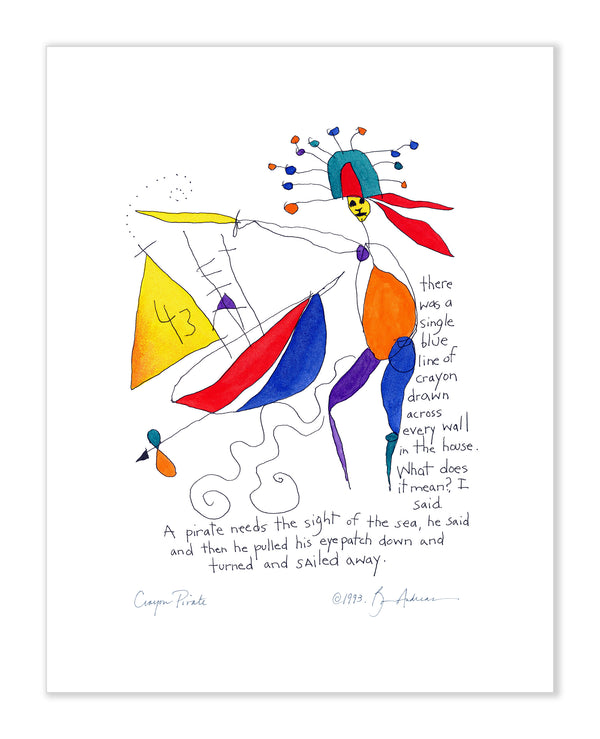 43
there
was a
single
blue
line of
crayon
drawn
across
every wall
in the house.
What does
it mean? I
said
A pirate needs the sight of the sea, he said
and then he pulled his eyepatch down and
turned and sailed away.
Crayon Pirate
©1993. Andreas